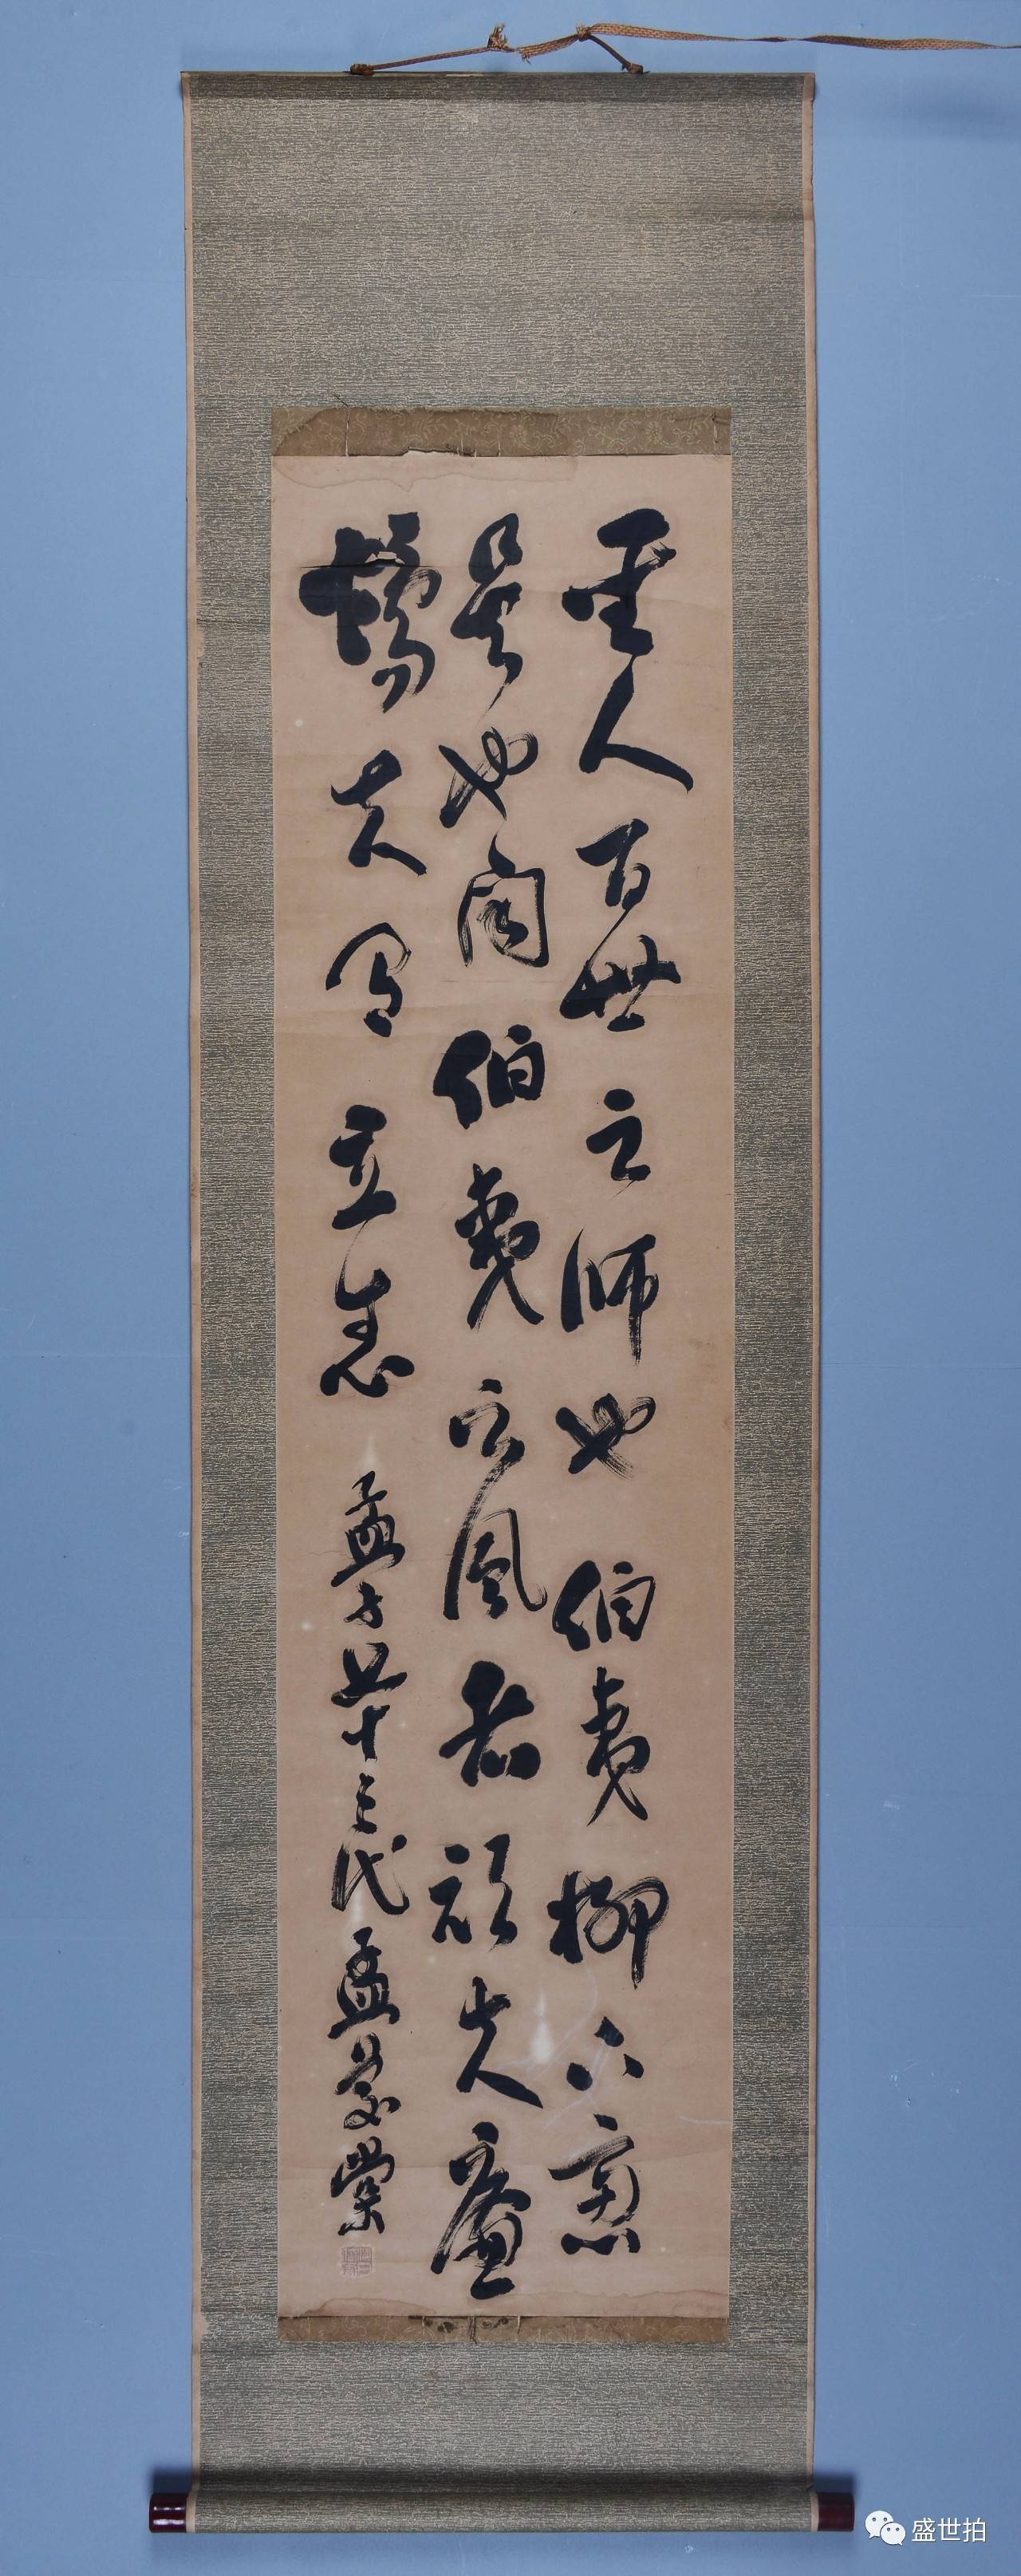 聖人百世之師也伯夷柳下惠
是也聞伯夷之風者頑夫廉
懦夫有立志 孟子七十三代孟慶棠
盛世拍